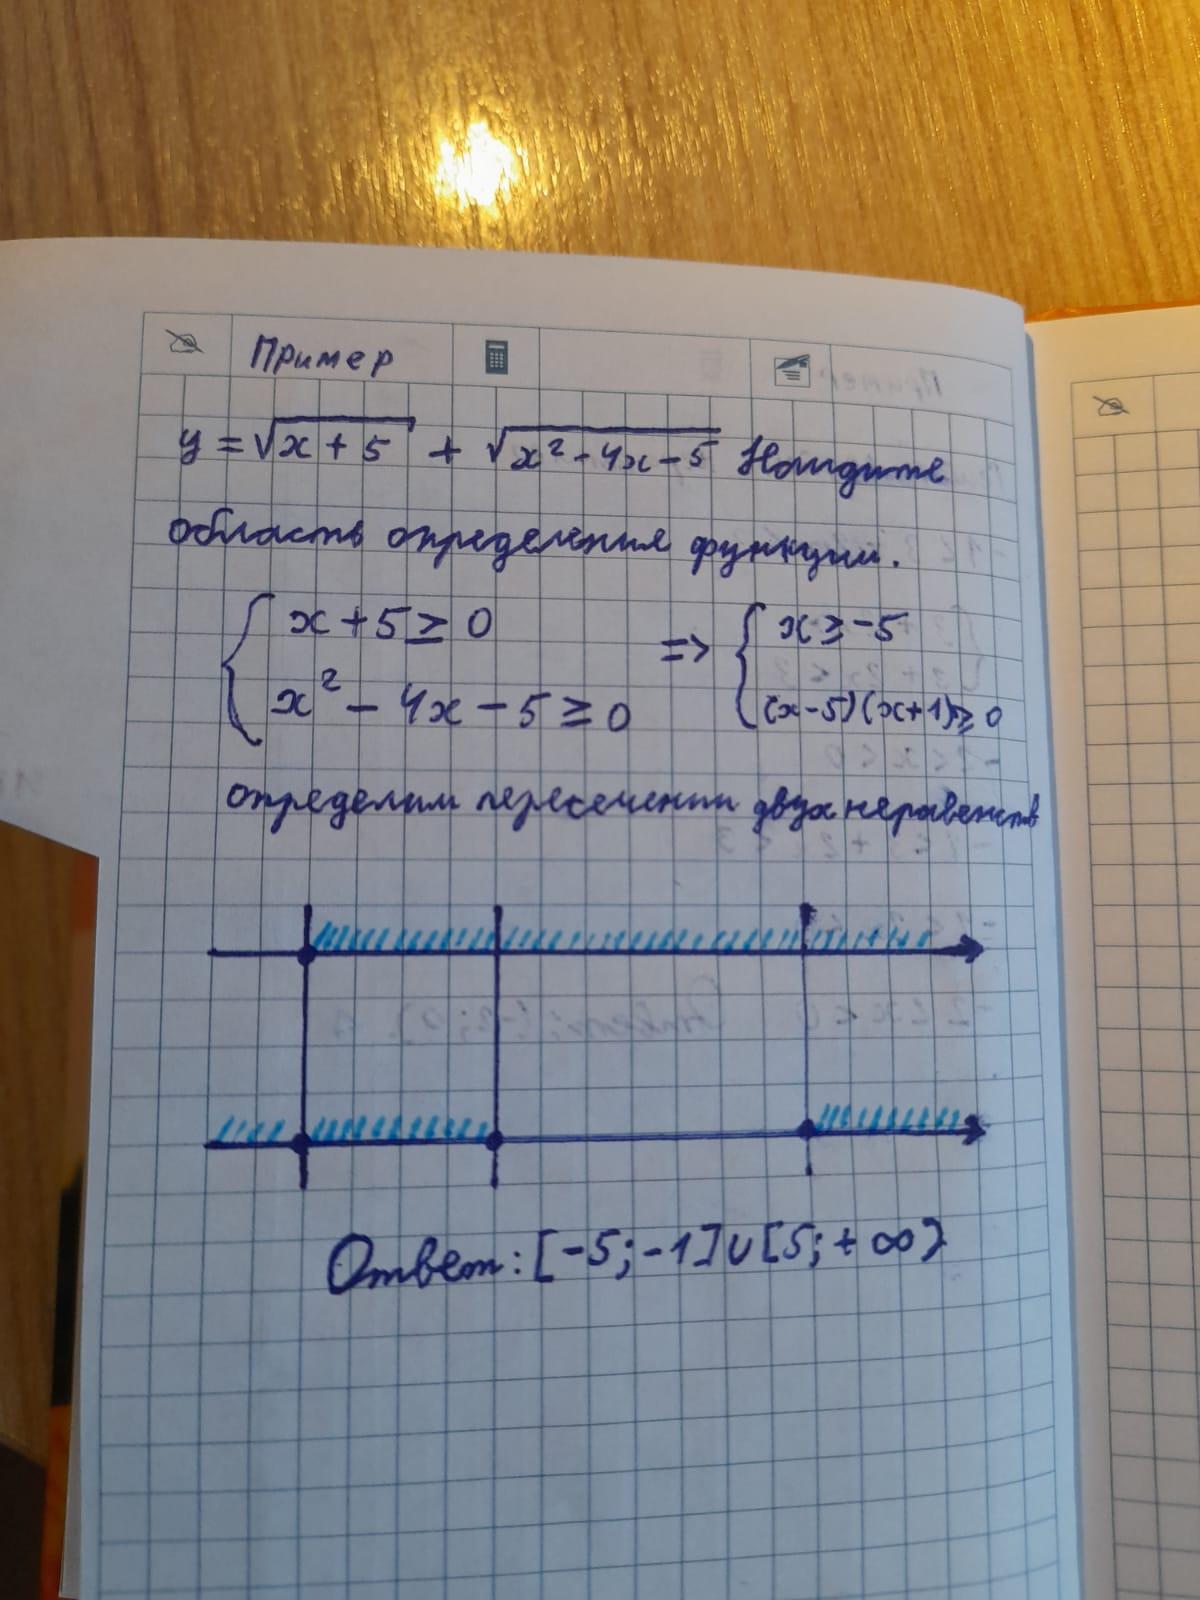 Пример
y = √x + 5 + √x² - 4x - 5 Найдите
область определения функции.
{ x + 5 ≥ 0 => { x ≥ -5
x² - 4x - 5 ≥ 0 (x-5)(x+1) ≥ 0
определим пересечении двух неравенств
Ответ: [-5; -1] ∪ [5; +∞)